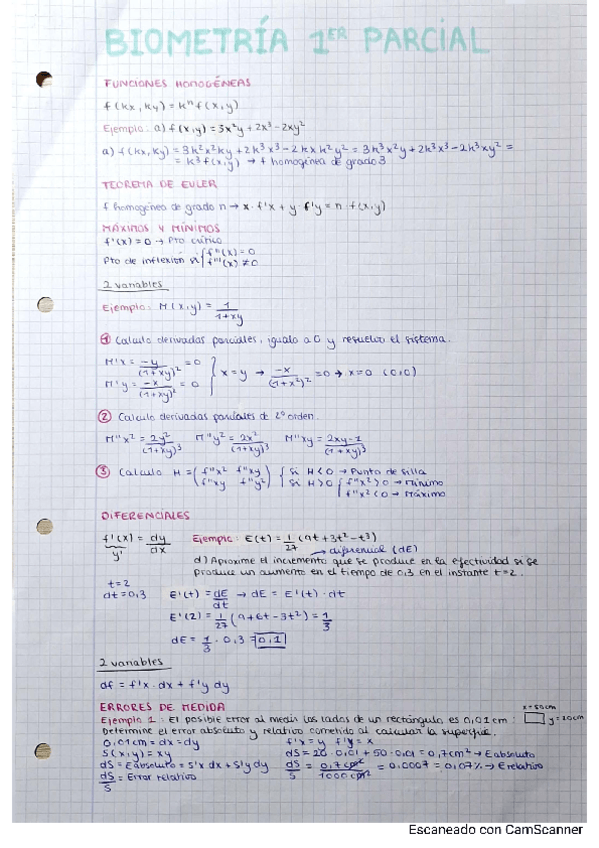 BIOMETRÍA 1ER PARCIAL
FUNCIONES HOMOGÉNEAS
f(kx, ky) = kⁿ f(x,y)
Ejemplo: a) f(x,y) = 3x²y + 2x³ - 2xy²
a) f(kx, ky) = 3k²x²ky + 2k³x³ - 2kxk²y² = 3k³x²y + 2k³x³ - 2k³xy² =
= k³f(x,y) → f homogénea de grado 3
TEOREMA DE EULER
f homogénea de grado n → x · f'x + y · f'y = n · f(x,y)
MÁXIMOS Y MÍNIMOS
f'(x) = 0 → Pto crítico
Pto de inflexión si { f''(x) = 0
f'''(x) ≠ 0
2 variables
Ejemplo: M(x,y) = 1/(1+xy)
① Calculo derivadas parciales, igualo a 0 y resuelvo el sistema.
M'x = -y/(1+xy)² = 0
M'y = -x/(1+xy)² = 0 } x = y → -x/(1+x²)² = 0 → x = 0 (0,0)
② Calculo derivadas parciales de 2º orden.
M''x² = 2y²/(1+xy)³ M''y² = 2x²/(1+xy)³ M''xy = 2xy-1/(1+xy)³
③ Calculo H = (f''x² f''xy { si H < 0 → Punto de silla
f''xy f''y²) { si H > 0 { f''x² > 0 → Mínimo
f''x² < 0 → Máximo
DIFERENCIALES
f'(x) = dy/dx Ejemplo: E(t) = 1/27 (9t + 3t² - t³)
y' → diferencial (dE)
d) Aproxime el incremento que se produce en la efectividad si se
produce un aumento en el tiempo de 0,3 en el instante t = 2.
t = 2
dt = 0,3 E'(t) = dE/dt → dE = E'(t) · dt
E'(2) = 1/27 (9 + 6t - 3t²) = 1/3
dE = 1/3 · 0,3 = 0,1
2 variables
df = f'x · dx + f'y dy
ERRORES DE MEDIDA
x = 50cm
Ejemplo 1: El posible error al medir los lados de un rectángulo es 0,01cm: y = 20cm
Determine el error absoluto y relativo cometido al calcular la superficie.
0,01cm = dx = dy f'x = y f'y = x
S(x,y) = xy dS = 20 · 0,01 + 50 · 0,01 = 0,7cm² → E absoluto
dS = E absoluto = S'x dx + S'y dy dS/S = 0,7cm²/1000cm² = 0,0007 = 0,07% → E relativo
dS/S = Error relativo
Escaneado con CamScanner